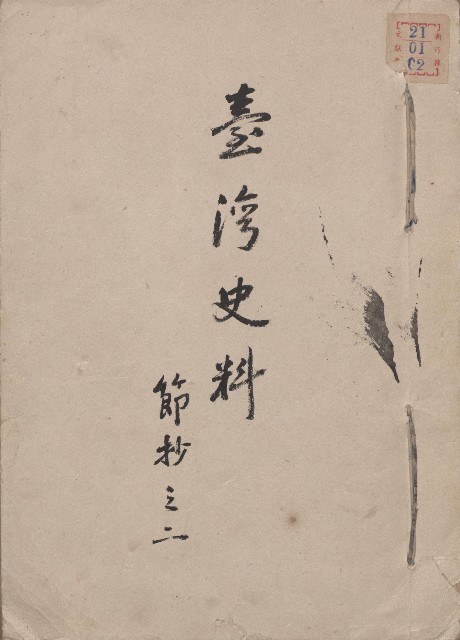 臺灣史料
節抄之二
21
01
02